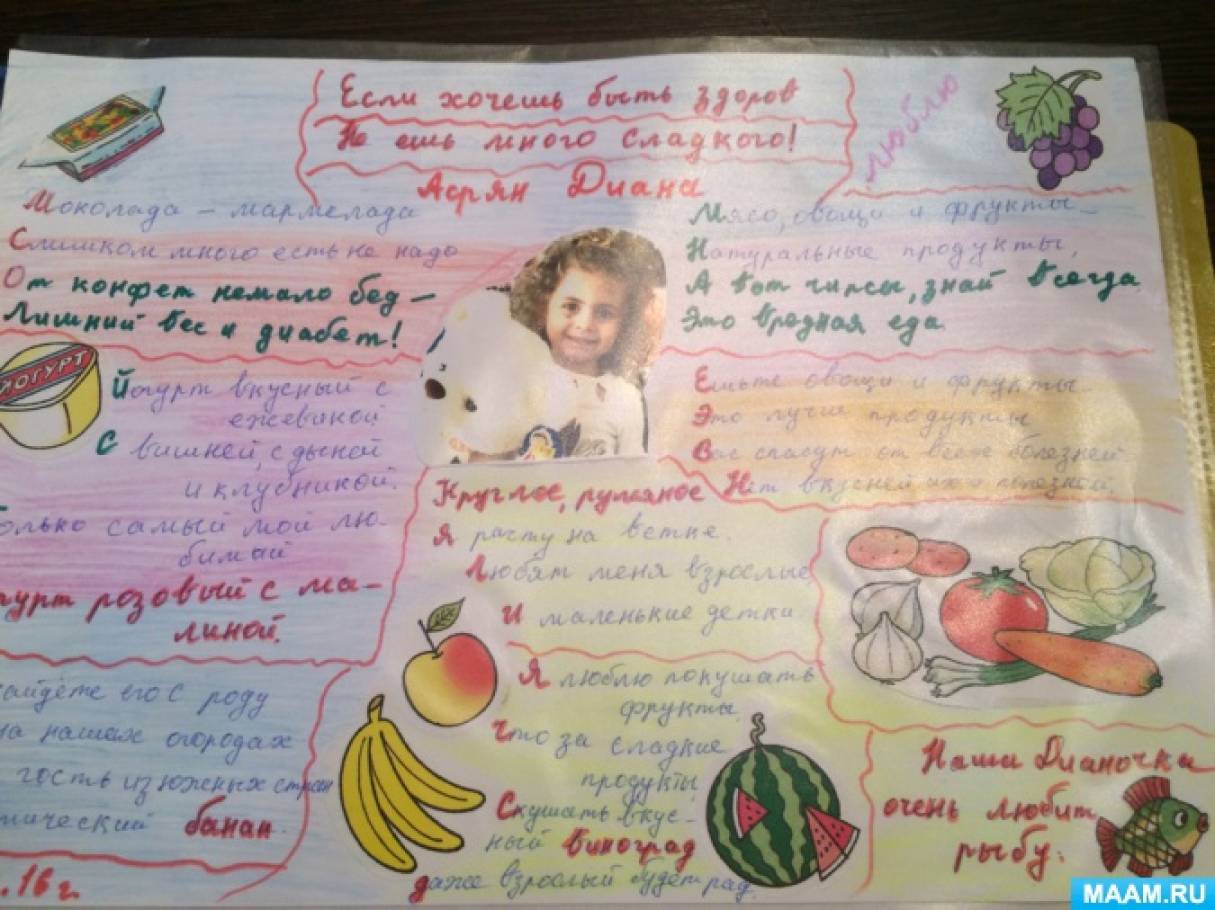 Если хочешь быть здоров
Не ешь много сладкого!
Асрян Диана
люблю
Шоколада – мармелада
Слишком много есть не надо
От конфет немало бед –
Лишний вес и диабет!
Мясо, овощи и фрукты –
Натуральные продукты,
А вот чипсы, знай всегда
Это вредная еда
ЙОГУРТ
Йогурт вкусный с
ежевикой
С вишней, с дыней
и клубникой.
только самый мой лю-
бимый
гурт розовый с ма-
линой.
Ешьте овощи и фрукты
Это лучше продукты
Вас спасут от всех болезней
Нет вкусней и полезней.
Круглое, румяное
Я расту на ветке.
Любят меня взрослые,
И маленькие детки
айдёте его с роду
на наших огородах
гость из южных стран
ический банан.
.16 г.
Я люблю покушать
фрукты
Что за сладкие
продукты
Скушать вкус-
ный виноград
даже взрослый будет рад.
Наша Дианочка
очень любит
рыбу.
MAAM.RU